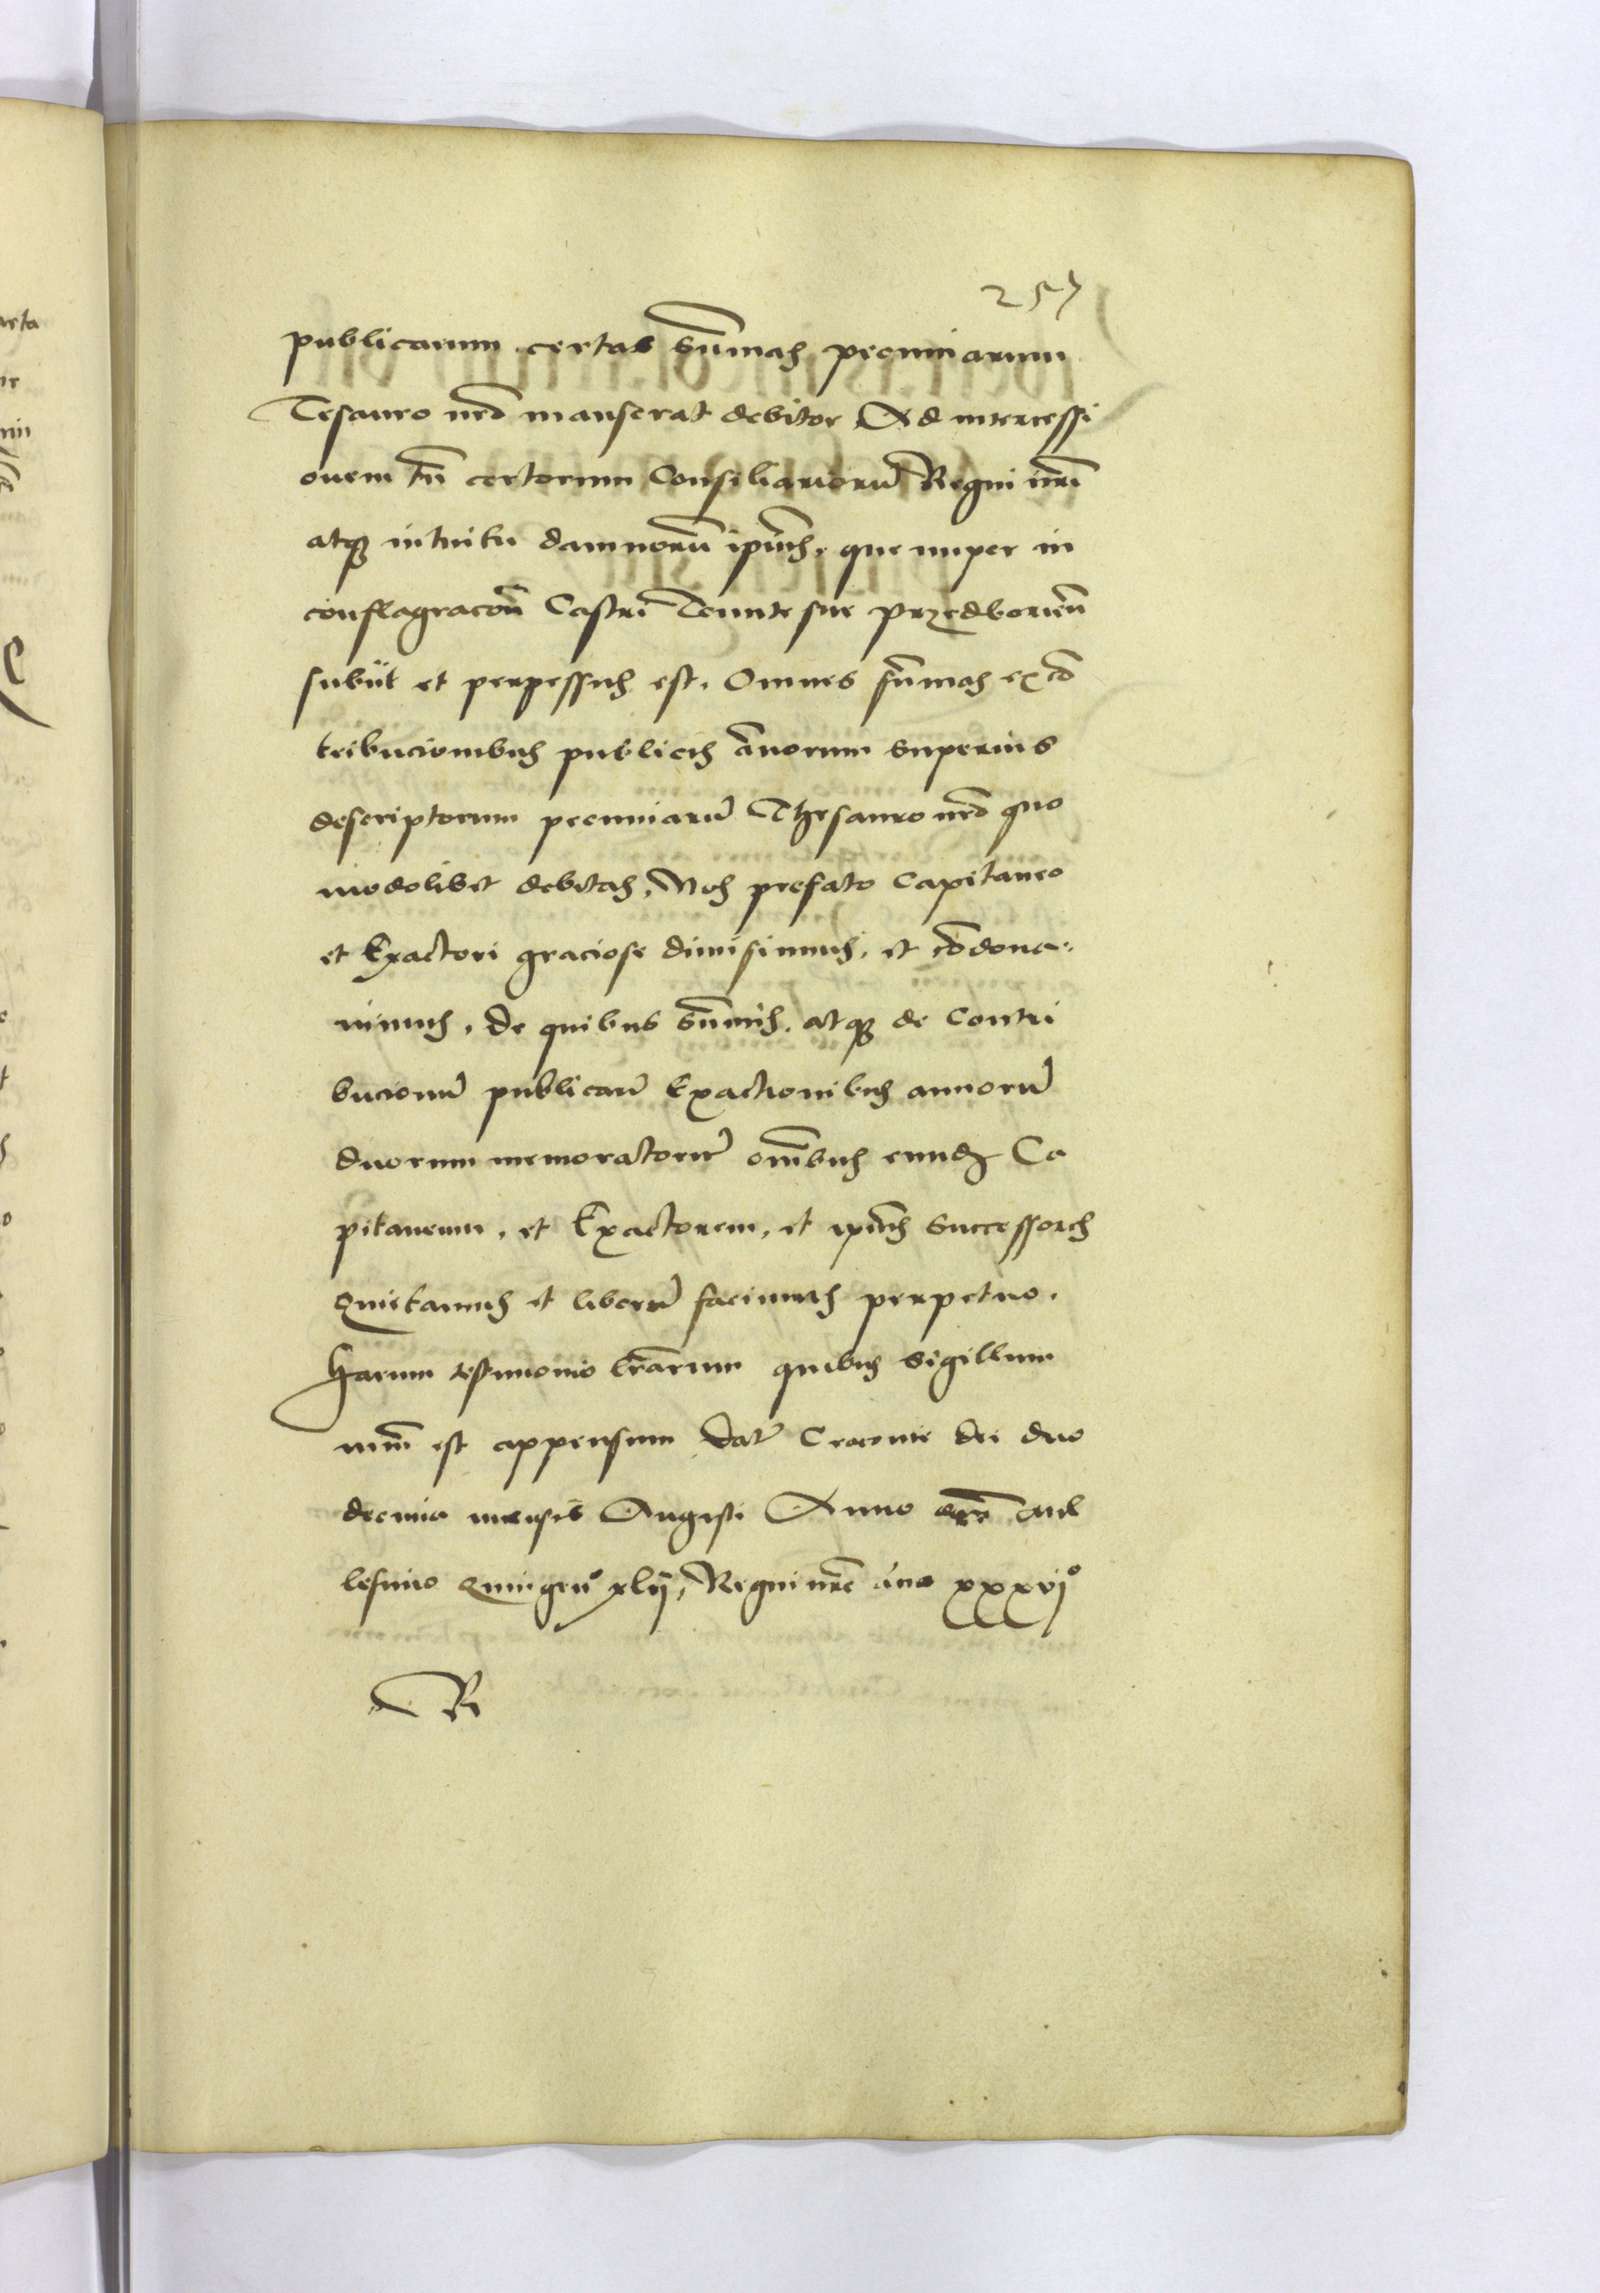 257
publicarum certas sum̄mas pecuniarum
Tesauro nr̄o manserat debitor Ad intercessi
onem tn̄ certorum Consiliarioru Regni nr̄i
atqʒ intuitu damnorū ipius, que nuper in
conflagracon̄ Castri Tenute sue Przedborien̄
subiit et perpessus est. Omnes sūmas ex cō
tribucionibus publicis ānorum superius
descriptorum pecuniaru Thesauro nr̄o quo
modolibet debitas, Nos prefato Capitaneo
et Exactori graciose dimisimus, et cōdona-
uimus, de quibus sūmis, atqʒ de Contri
bucionu publicaru Exactionibus annoru
duorum memoratoru om̄ibus eundʒ Ca
pitaneum, et Exactorem, et ipius Successores
Quietamus et liberu facimus perpetuo.
Harum testimonio lr̄arum quibus Sigillum
nrm̄ est appensum Dat Cracouie die duo
decima mensis Augusti Anno dn̄i Mil
lesimo Quingenᵒ xlij, Regni nr̄i āno xxxvjᵒ
R